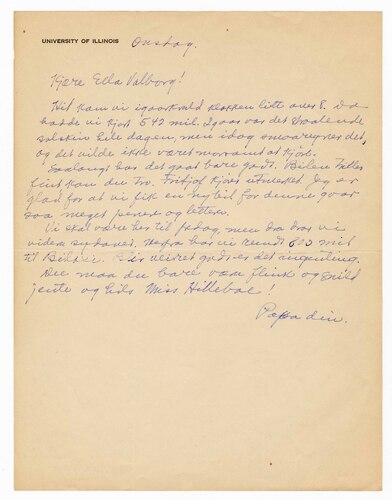 UNIVERSITY OF ILLINOIS Onsdag.
Kjere Ella Valborg!
Hit kom vi igaarkveld klokken litt over 8. Da
hadde vi kjort 542 mil. Igaar var det straalende
solskin hele dagen, men idag smaaregner det,
og det vilde ikke været morsomt at kjøre.
Saalangt har det gaat bare godt. Bilen
fint kan du tro. Fritjof kjører utmerket. Jeg er
glad for at vi fik en ny bil for denne gaar
saa meget penere og lettere.
Vi skal være her til fredag, men da drar vi
videre sydover. Herfra har vi rundt 600 mil
til Biloxi. Blir veiret godt er det ingenting.
Du maa du bare være flink og snild
jente og hils Miss Hilleboe!
Papa din.